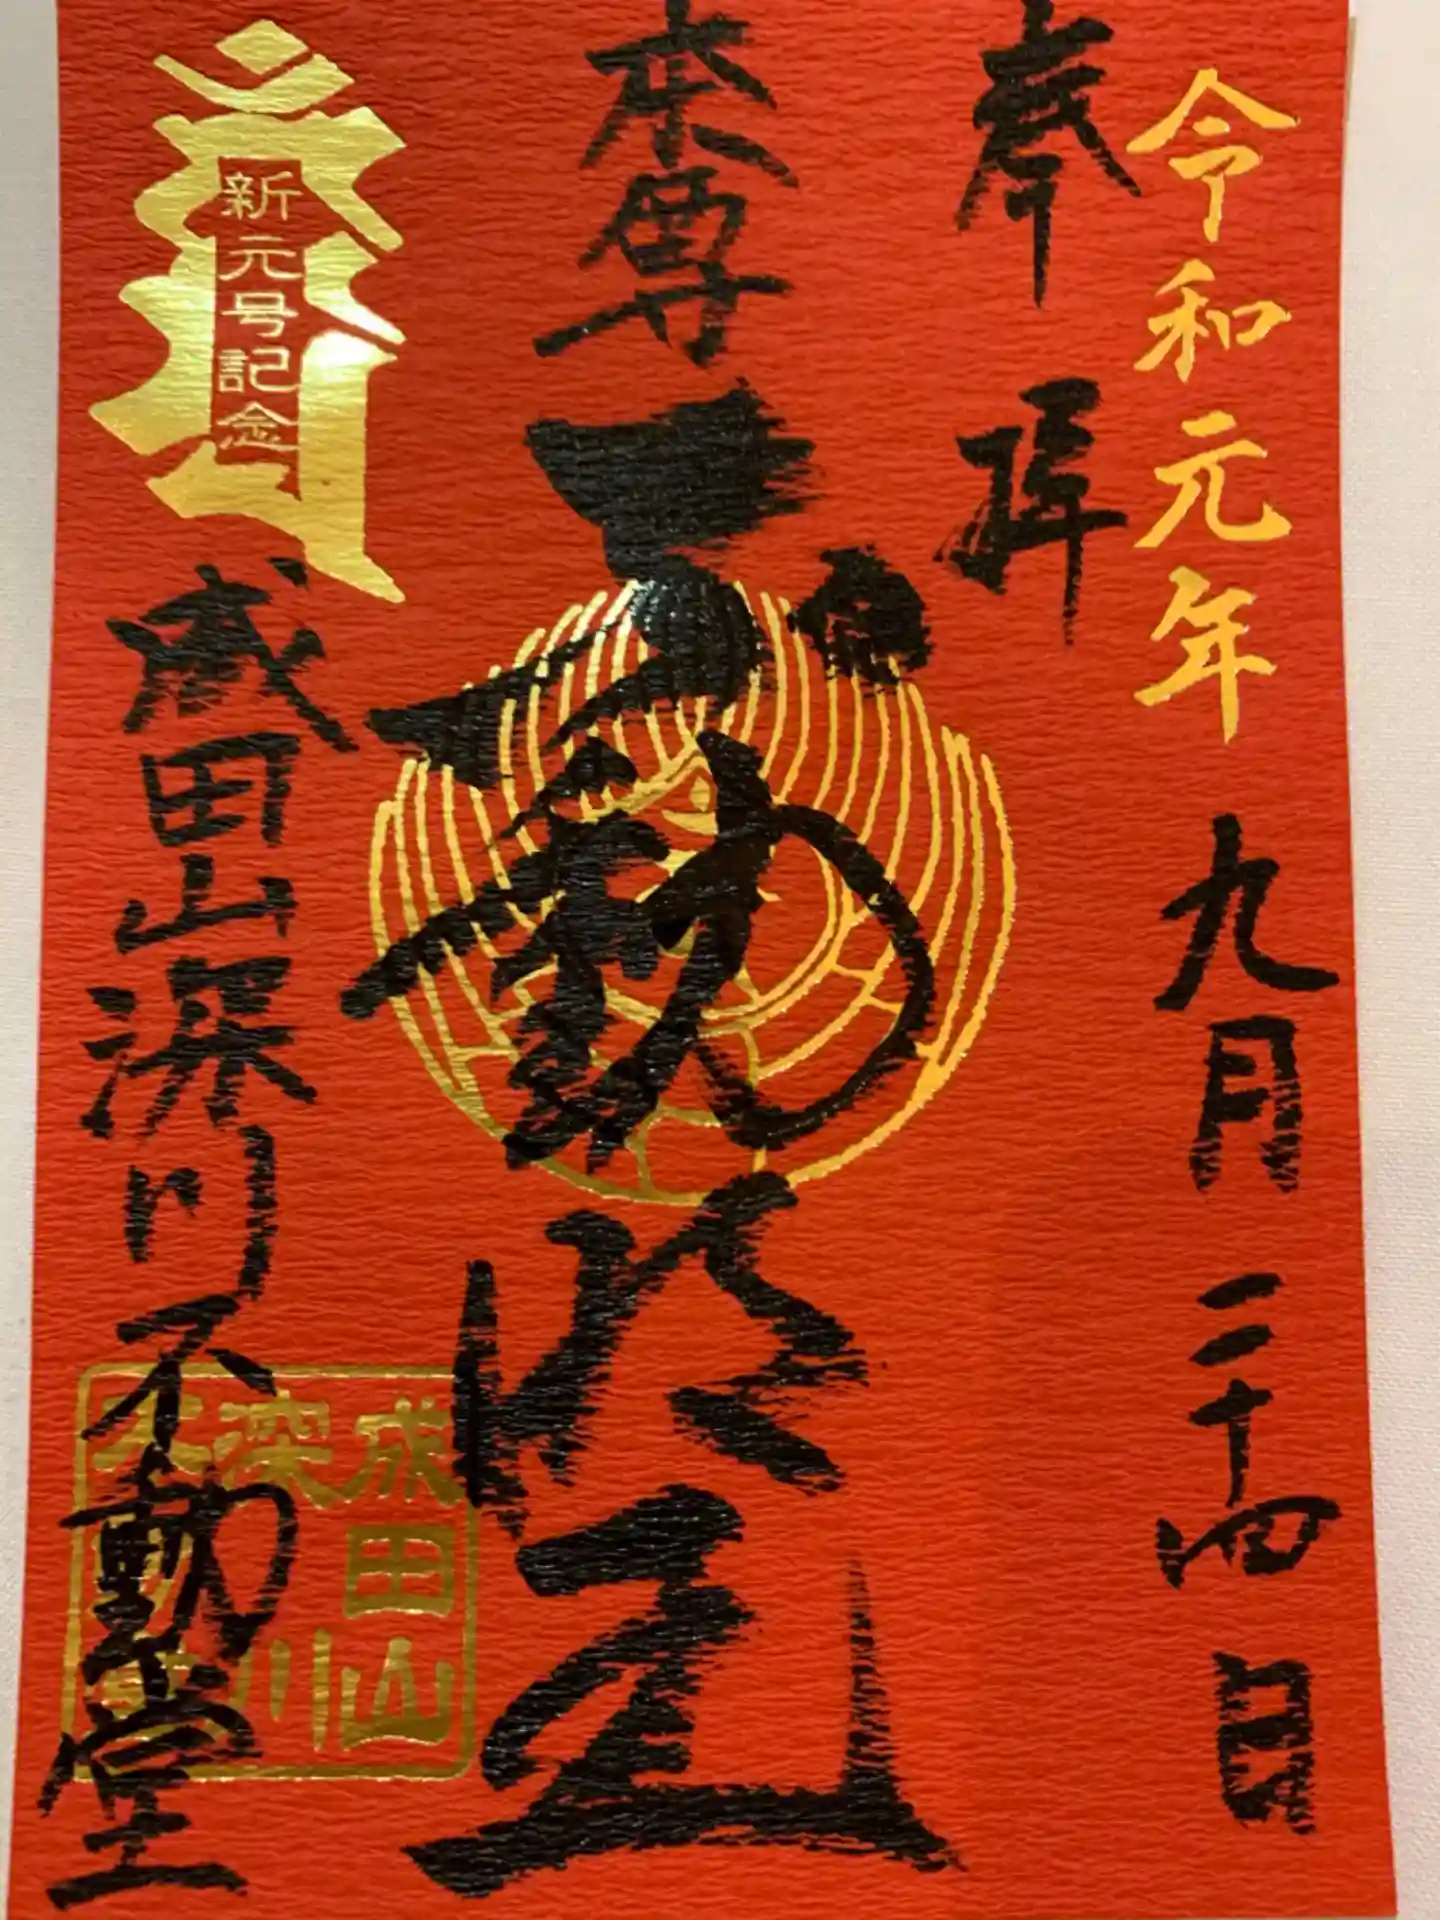 令和元年九月二十四日
奉拝
本尊
不動明王
新元号記念
成田山深川不動堂
成田山
深川